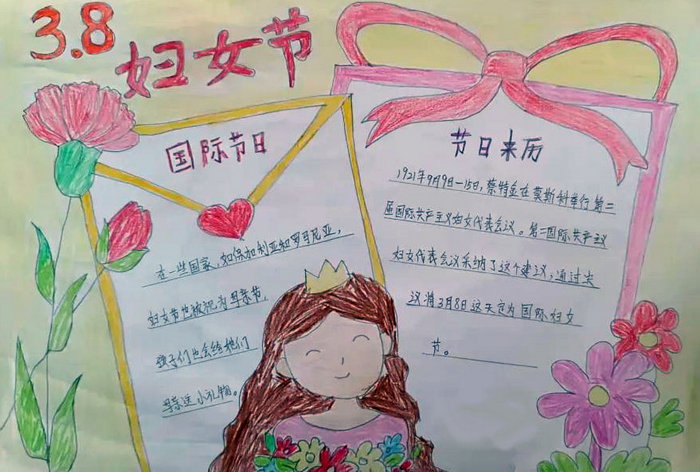 3.8
妇女节
国际节日
在一些国家，如保加利亚和罗马尼亚，
妇女节也被视为母亲节，
孩子们也会给他们
母亲送小礼物。
节日来历
1921年9月9日—15日，蔡特金在莫斯科举行第二
届国际共产主义妇女代表会议。第二国际共产主义
妇女代表会议采纳了这个建议，通过决
议将3月8日这天定为国际妇女
节。